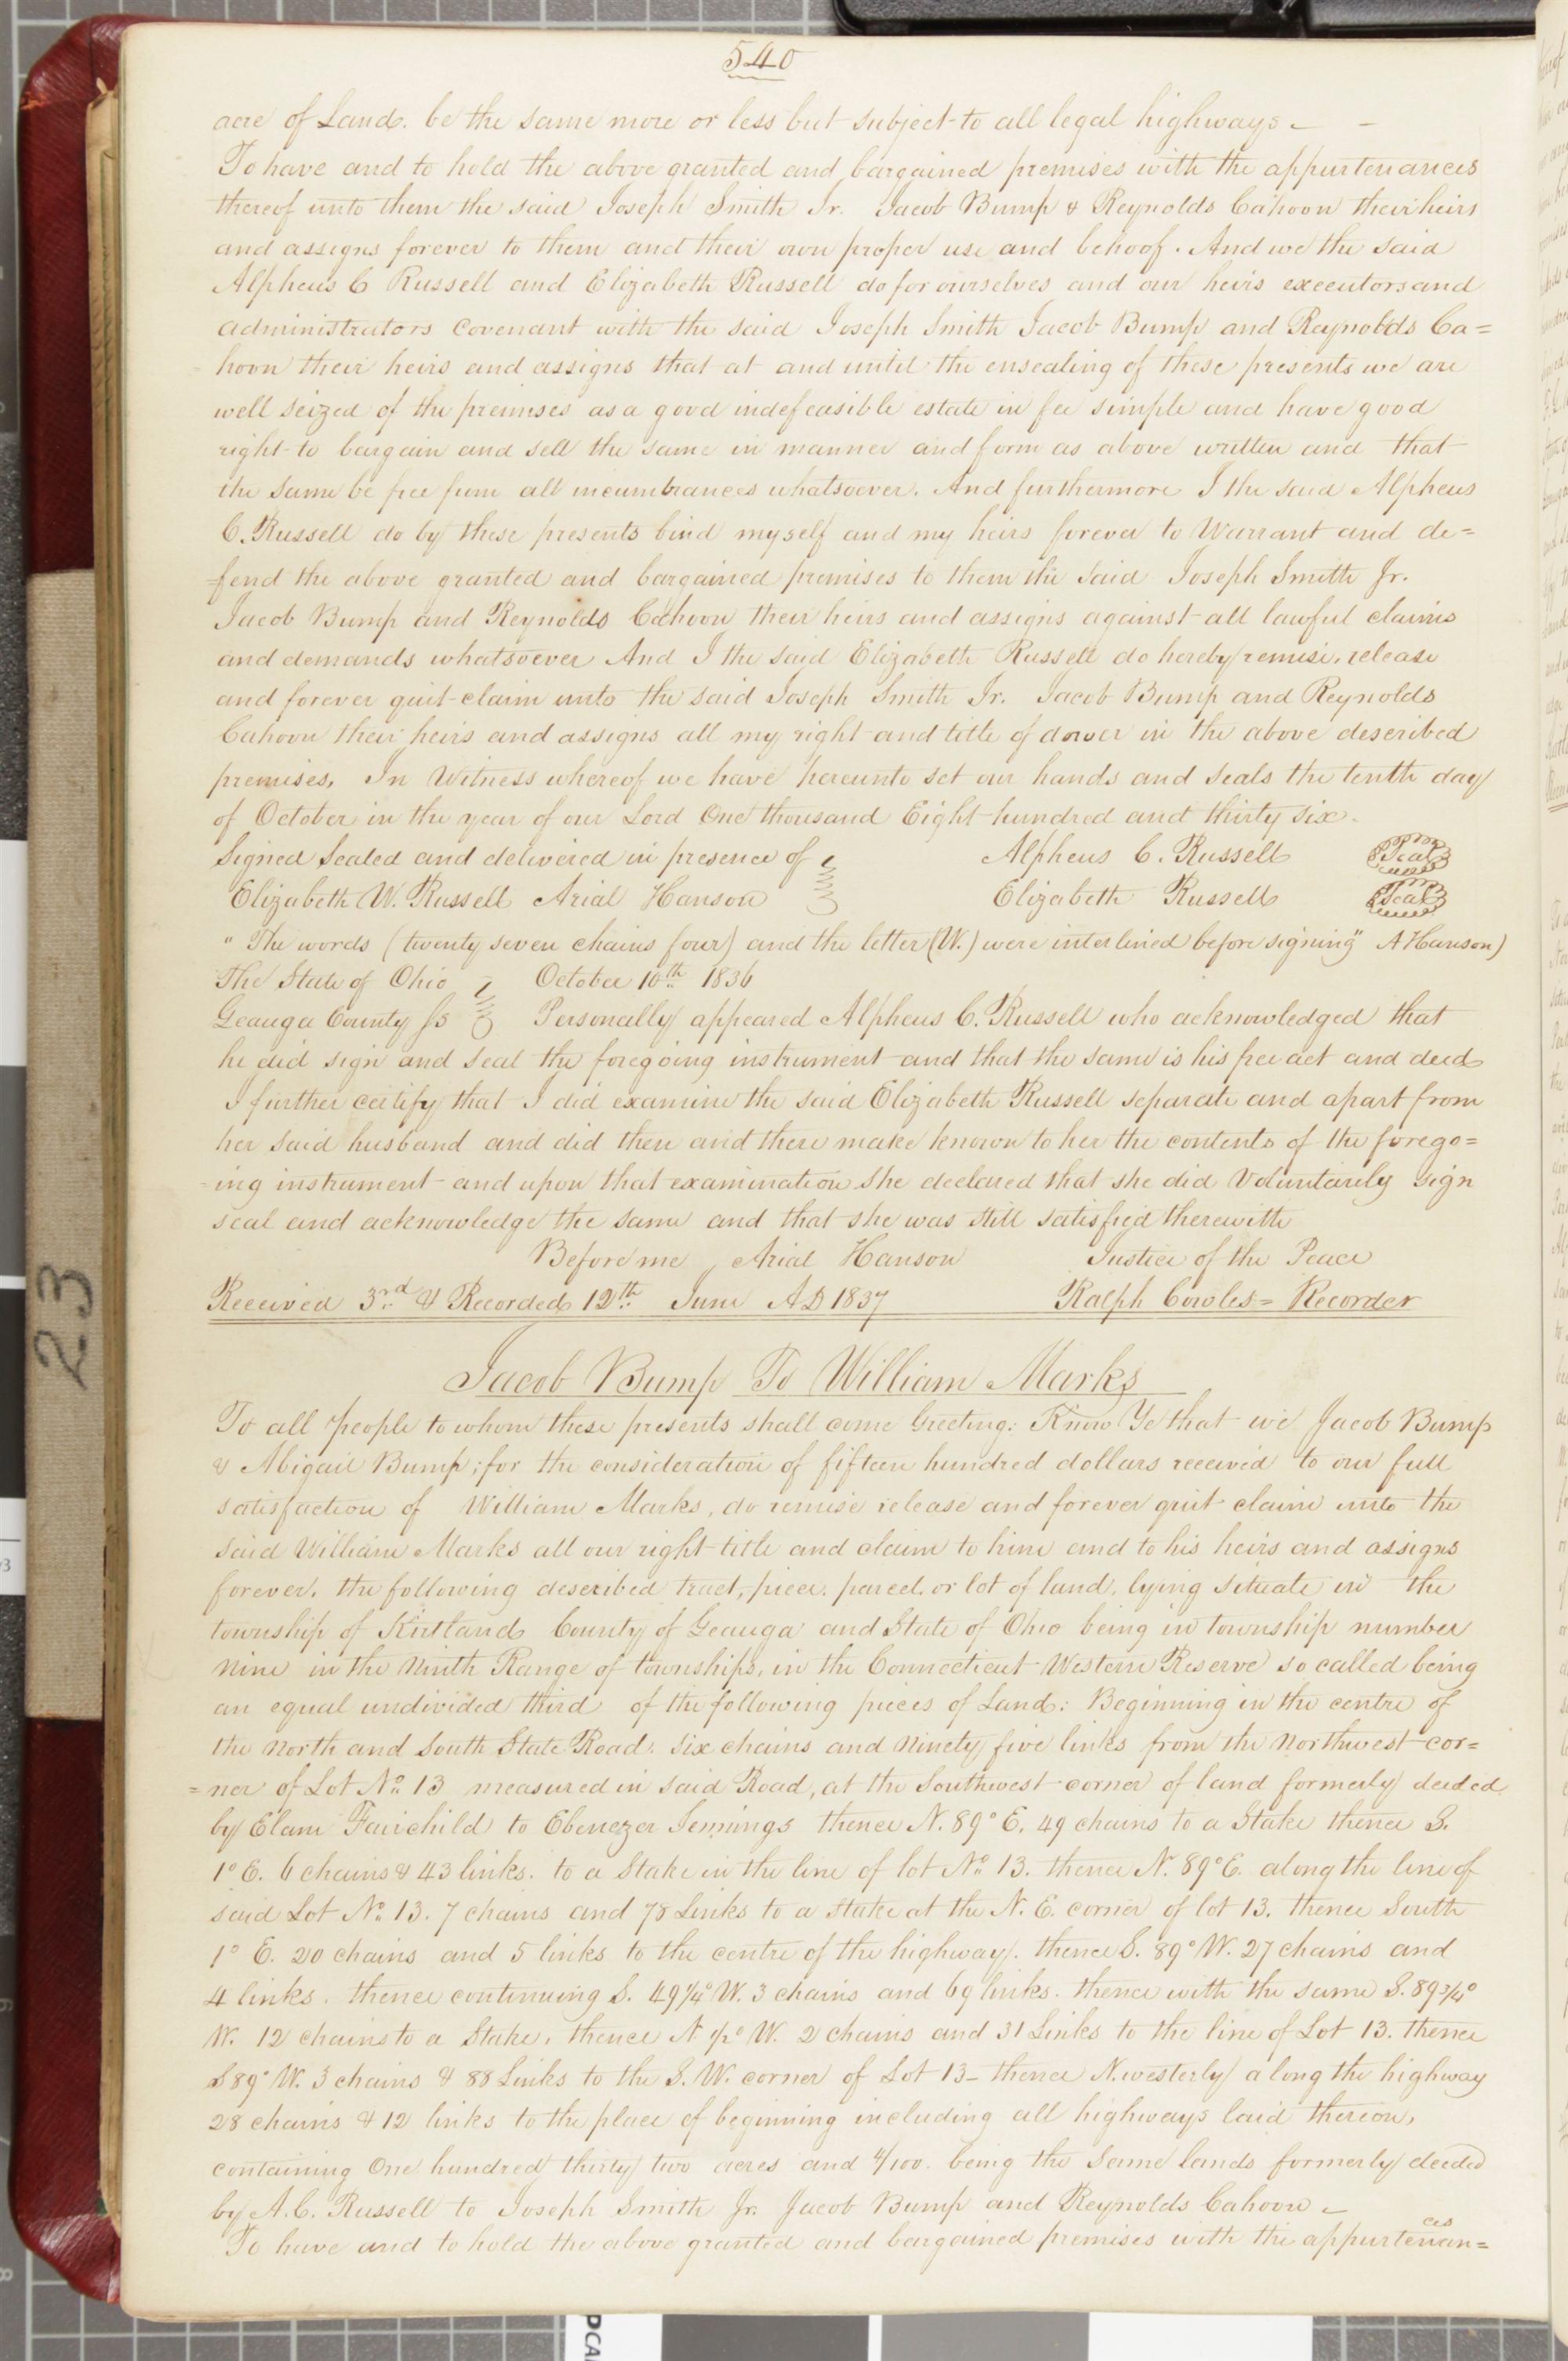 540
acre of Land. be the same more or less but subject to all legal highways –  –
To have and to hold the above granted and bargained premises with the appurtenances
thereof unto them the said Joseph Smith Jr. Jacob Bump & Reynolds Cahoon their heirs
and assigns forever to them and their own proper use and behoof. And we the said
Alpheus C Russell and Elizabeth Russell do for ourselves and our heirs executors and
administrators covenant with the said Joseph Smith Jacob Bump and Reynolds Ca=
hoon their heirs and assigns that at and until the ensealing of these presents we are
well seized of the premises as a good indefeasible estate in fee simple and have good
right to bargain and sell the same in manner and form as above written and that
the same be free from all incumbrances whatsoever. And furthermore I the said Alpheus
C. Russell do by these presents bind myself and my heirs forever to Warrant and de=
fend the above granted and bargained premises to them the said Joseph Smith Jr.
Jacob Bump and Reynolds Cahoon their heirs and assigns against all lawful claims
and demands whatsoever And I the said Elizabeth Russell do hereby remise, release
and forever quit-claim unto the said Joseph Smith Jr. Jacob Bump and Reynolds
Cahoon their heirs and assigns all my right and title of dower in the above described
premises, In Witness whereof we have hereunto set our hands and seals the tenth day
of October in the year of our Lord One thousand Eight hundred and thirty six.
Signed Sealed and delivered in presence of Alpheus C. Russell Seal
Elizabeth W. Russell Arial Hanson Elizabeth Russell Seal
" The words (twenty seven chains four) and the letter (W.) were interlined before signing" A Hanson)
The State of Ohio October 10th 1836
Geauga County Ss Personally appeared Alpheus C. Russell who acknowledged that
he did sign and seal the foregoing instrument and that the same is his free act and deed
I further certify that I did examine the said Elizabeth Russell separate and apart from
her said husband and did then and there make known to her the contents of the forego=
ing instrument and upon that examination she declared that she did Voluntarily sign
seal and acknowledge the same and that she was still satisfied therewith
Before me, Arial Hanson Justice of the Peace
Received 3rd & Recorded 12th June AD 1837 Ralph Cowles = Recorder
Jacob Bump To William Marks
To all people to whom these presents shall come Greeting: Know Ye that we Jacob Bump
& Abigail Bump; for the consideration of fifteen hundred dollars received to our full
satisfaction of William Marks, do remise release and forever quit claim unto the
said William Marks all our right title and claim to him and to his heirs and assigns
forever, the following described tract, piece, parcel, or lot of land, lying situate in the
township of Kirtland County of Geauga and State of Ohio being in township number
nine in the Ninth Range of townships, in the Connecticut Western Reserve so called being
an equal undivided third of the following pieces of Land: Beginning in the centre of
the north and South State Road. six chains and Ninety five links from the northwest cor=
=ner of Lot No. 13 measured in said Road, at the Southwest corner of land formerly deeded
by Elam Fairchild to Ebenezer Jennings thence N. 89° E. 49 chains to a Stake thence S.
1° E. 6 chains & 43 links. to a Stake in the line of lot No. 13. thence N. 89° E. along the line of
said Lot No. 13. 7 chains and 78 Links to a stake at the N. E. corner of lot 13. thence South
1° E. 20 chains and 5 links to the centre of the highway. thence S. 89° W. 27 chains and
4 links. thence continuing S. 49 1/4° W. 3 chains and 69 links. thence with the same S. 89 3/4°
W. 12 chains to a Stake, thence N 1/2° W. 2 chains and 31 Links to the line of Lot 13. thence
S 89° W. 3 chains & 88 Links to the S. W. corner of Lot 13 – thence N. westerly along the highway
28 chains & 12 links to the place of beginning including all highways laid thereon,
containing One hundred thirty two acres and 4/100. being the same lands formerly deeded
by A. C. Russell to Joseph Smith Jr. Jacob Bump and Reynolds Cahoon –
To have and to hold the above granted and bargained premises with the appurtenan=
ces
23